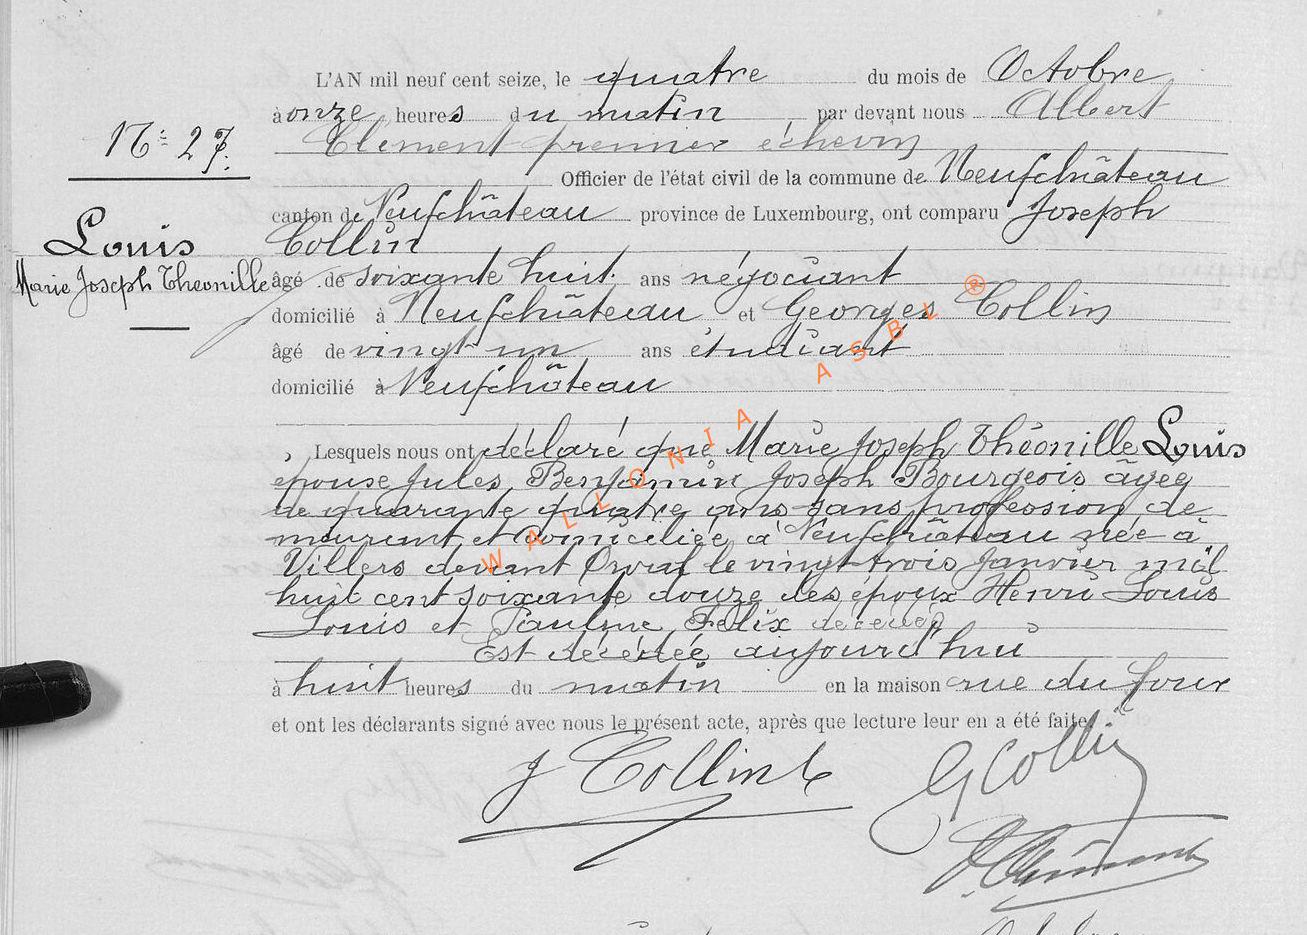 L'AN mil neuf cent seize, le quatre du mois de Octobre
à onze heures du matin par devant nous Albert
N° 27.
Clément premier échevin
Officier de l'état civil de la commune de Neufchâteau
canton de Neufchâteau province de Luxembourg, ont comparu Joseph
Louis
Collin
Marie Joseph Theonille
âgé de soixante huit ans négociant
domicilié à Neufchâteau et Georges Collin
âgé de vingt-un ans étudiant
domicilié à Neufchâteau
WALLONIA ASBL ®
Lesquels nous ont déclaré que Marie Joseph Théonille Louis
épouse Jules Benjamin Joseph Bourgeois âgée
de quarante quatre ans sans profession de
meurant et domiciliée à Neufchâteau née à
Villers devant Orval le vingt-trois Janvier mil
huit cent soixante douze des époux Henri Louis
Louis et Pauline Felix décédés
Est décédée aujourd'hui
à huit heures du matin en la maison rue du four
et ont les déclarants signé avec nous le présent acte, après que lecture leur en a été faite
J Collin
G Collin
A. Clément